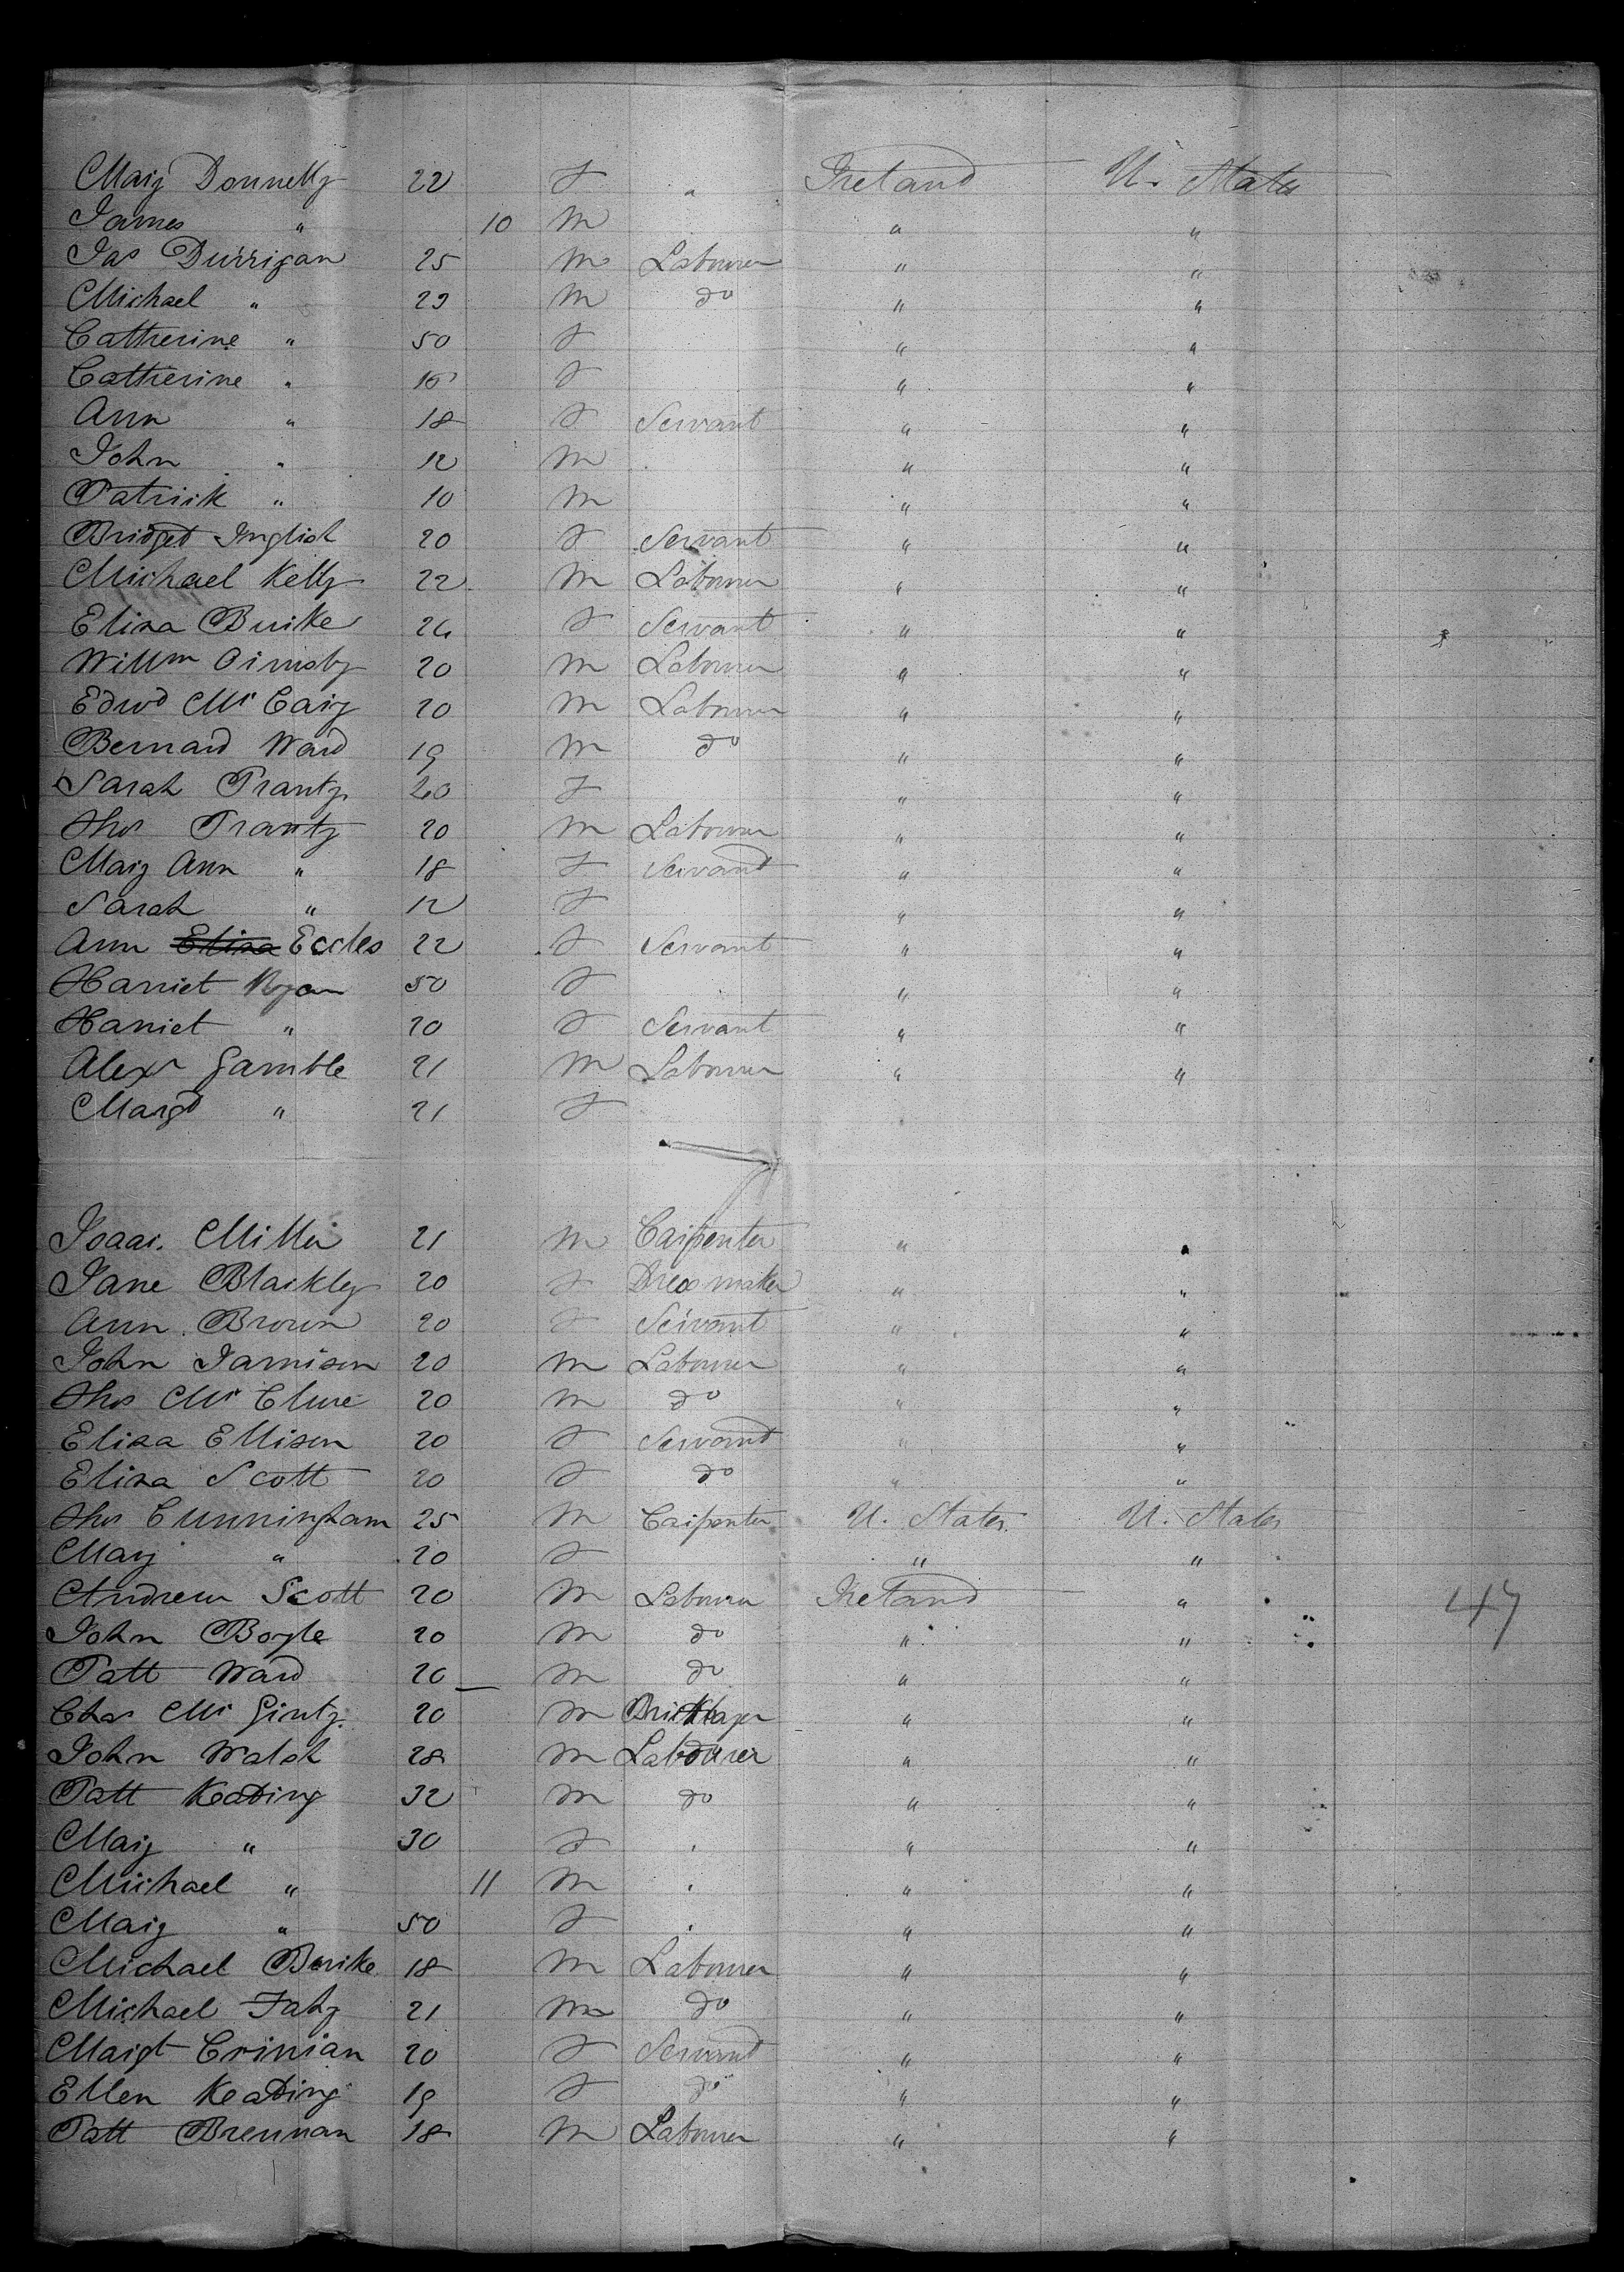 Mary Donnelly 22 F " Ireland U. States
James " 10 M " "
Jas Durrigan 25 M Labourer " "
Michael " 23 M do " "
Catherine " 50 F " "
Catherine " 16 F " "
Ann " 18 F Servant " "
John " 12 M " "
Patrick " 10 M " "
Bridget Inglish 20 F Servant " "
Michael Kelly 22 M Labourer " "
Eliza Burke 24 F Servant " "
Willm Ormsby 20 M Labourer " "
Edwd Mc Cary 20 M Labourer " "
Bernard Ward 19 M do " "
Sarah Pranty 20 F " "
Thos Pranty 20 M Labourer " "
Mary Ann " 18 F Servant " "
Sarah " 12 F " "
Ann Eliza Eccles 22 F Servant " "
Harriet Ryan 50 F " "
Harriet " 20 F Servant " "
Alexr Gamble 21 M Labourer " "
Margt " 21 F
Isaac Miller 21 M Carpenter " "
Jane Blackley 20 F Dress maker " "
Ann Brown 20 F Servant " "
John Jamison 20 M Labourer " "
Thos Mc Clure 20 M do " "
Eliza Ellison 20 F Servant " "
Eliza Scott 20 F do " "
Thos Cunningham 25 M Carpenter U. States U. States
Mary " 20 F " "
Andrew Scott 20 M Labourer Ireland " 47
John Boyle 20 M do " "
Patt Ward 20 M do " "
Chas Mc Ginty 20 M Bricklayer " "
John Walsh 28 M Labourer " "
Patt Keading 32 M do " "
Mary " 30 F " "
Michael " 11 M " "
Mary " 50 F " "
Michael Burke 18 M Labourer " "
Michael Fahy 21 M do " "
Margt Crinian 20 F Servant " "
Ellen Keading 19 F do " "
Patt Brennan 18 M Labourer " "